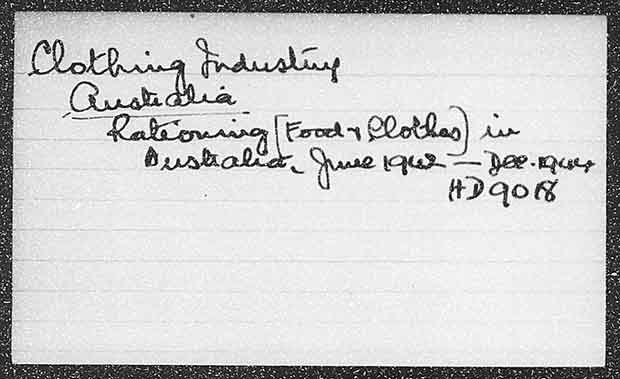 Clothing Industry
Australia
Rationing [Food & Clothes] in
Australia, June 1942 — Dec. 1944
HD 9018